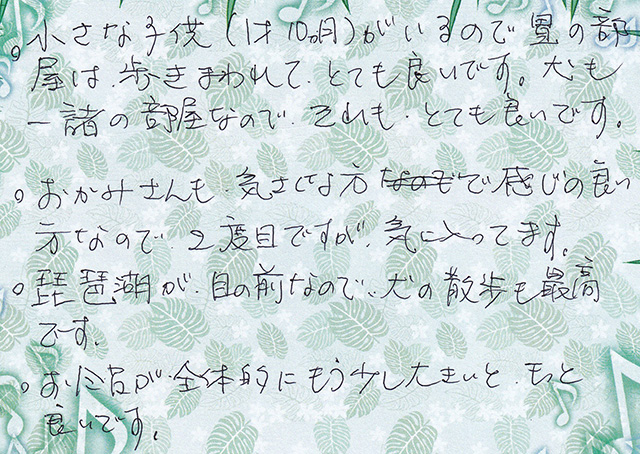 。小さな子供(1才10ヵ月)がいるので畳の部
屋は、歩きまわれて、とても良いです。犬も
一諸の部屋なので、それも、とても良いです。
。おかみさんも、気さくな方で感じの良い
方なので、2度目ですが、気に入ってます。
。琵琶湖が、目の前なので、犬の散歩も最高
です。
。が、全体的にもう少し大きいと、もっと
良いです。